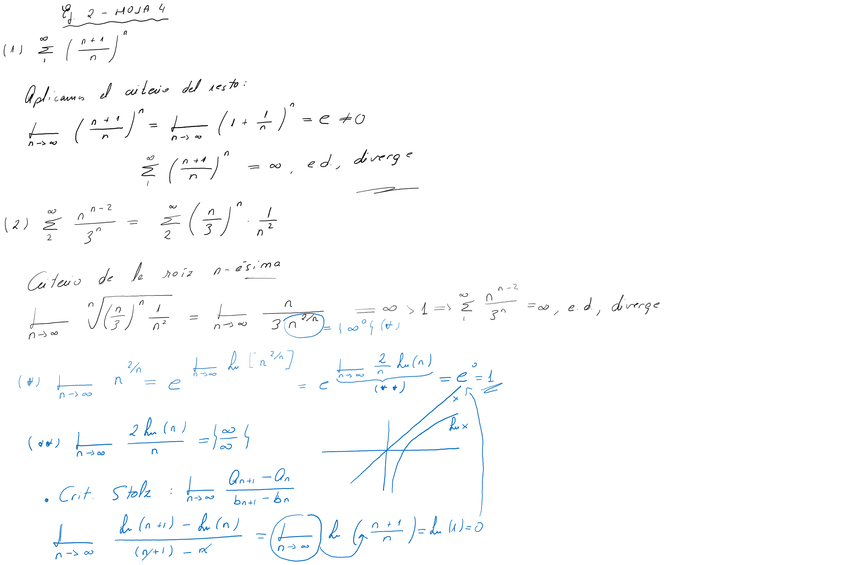 Ej 2 - HOJA 4
(1) ∞ Σ 1 ( n+1 / n )^n
Aplicamos el criterio del resto:
L n→∞ ( n+1 / n )^n = L n→∞ ( 1 + 1/n )^n = e ≠ 0
∞ Σ 1 ( n+1 / n )^n = ∞, e.d., diverge
(2) ∞ Σ 2 n^(n-2) / 3^n = ∞ Σ 2 ( n/3 )^n · 1/n^2
Criterio de la raiz n-ésima
L n→∞ n√( (n/3)^n 1/n^2 ) = L n→∞ n / 3 n^(2/n) = ∞ > 1 ⇒ ∞ Σ 1 n^(n-2) / 3^n = ∞, e.d., diverge
= {∞^0} (*)
(*) L n→∞ n^(2/n) = e^( L n→∞ ln [n^(2/n)] ) = e^( L n→∞ 2/n ln(n) ) (**) = e^0 = 1
x
ln x
(**) L n→∞ 2 ln(n) / n = {∞/∞}
• Crit. Stolz : L n→∞ a_(n+1) - a_n / b_(n+1) - b_n
L n→∞ ln(n+1) - ln(n) / (n+1) - n = L n→∞ ln ( n+1 / n ) = ln(1) = 0